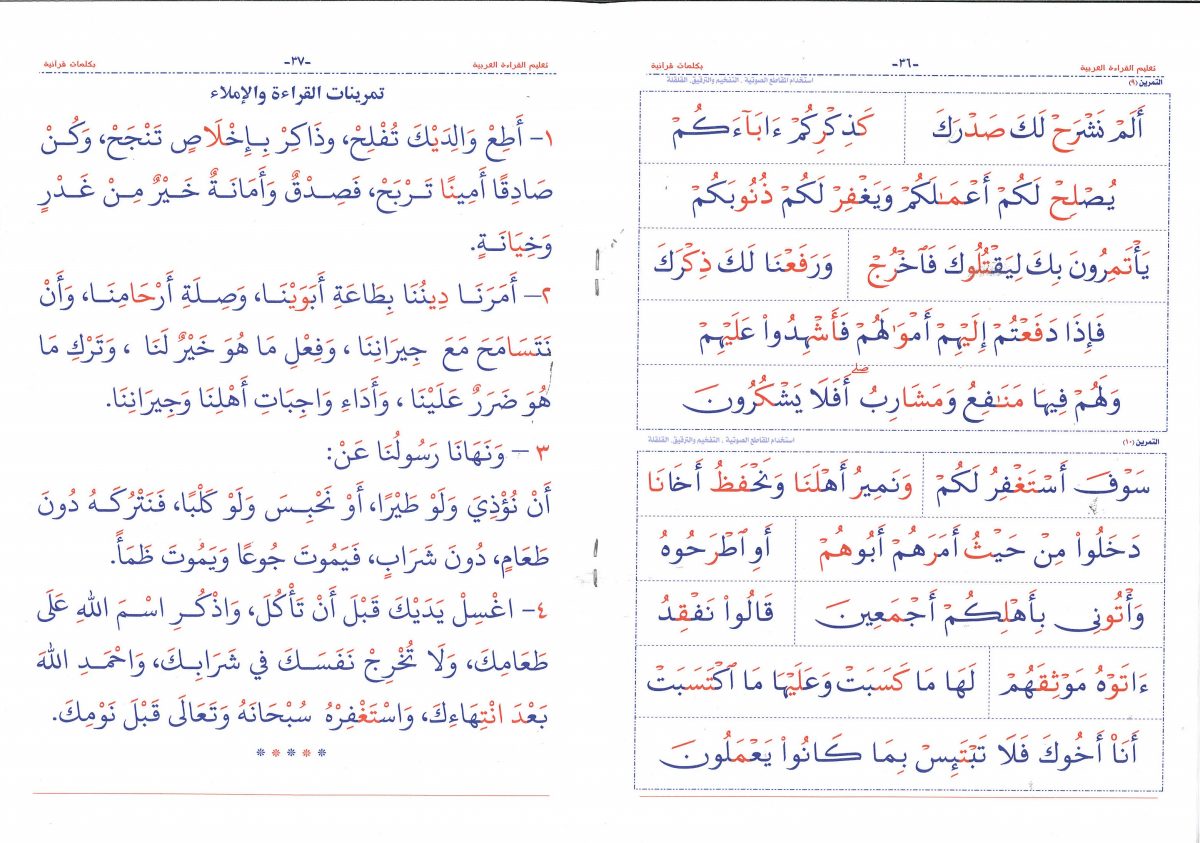 تعليم القراءة العربية -٣٦- بكلمات قرآنية
التمرين (٩) استخدام المقاطع الصوتية . التفخيم والترقيق. القلقلة
أَلَمْ نَشْرَحْ لَكَ صَدْرَكَ كَذِكْرِكُمْ ءَابَآءَكُمْ
يُصْلِحْ لَكُمْ أَعْمَٰلَكُمْ وَيَغْفِرْ لَكُمْ ذُنُوبَكُمْ
يَأْتَمِرُونَ بِكَ لِيَقْتُلُوكَ فَٱخْرُجْ وَرَفَعْنَا لَكَ ذِكْرَكَ
فَإِذَا دَفَعْتُمْ إِلَيْهِمْ أَمْوَٰلَهُمْ فَأَشْهِدُوا۟ عَلَيْهِمْ
وَلَهُمْ فِيهَا مَنَٰفِعُ وَمَشَارِبُ ۖ أَفَلَا يَشْكُرُونَ
التمرين (١٠) استخدام المقاطع الصوتية . التفخيم والترقيق. القلقلة
سَوْفَ أَسْتَغْفِرُ لَكُمْ وَنَمِيرُ أَهْلَنَا وَنَحْفَظُ أَخَانَا
دَخَلُوا۟ مِنْ حَيْثُ أَمَرَهُمْ أَبُوهُمْ أَوِ ٱطْرَحُوهُ
وَأْتُونِى بِأَهْلِكُمْ أَجْمَعِينَ قَالُوا۟ نَفْقِدُ
ءَاتَوْهُ مَوْثِقَهُمْ لَهَا مَا كَسَبَتْ وَعَلَيْهَا مَا ٱكْتَسَبَتْ
أَنَا۠ أَخُوكَ فَلَا تَبْتَئِسْ بِمَا كَانُوا۟ يَعْمَلُونَ
تعليم القراءة العربية -٣٧- بكلمات قرآنية
تمرينات القراءة والإملاء
١- أَطِعْ وَالِدَيْكَ تُفْلِحْ، وذَاكِرْ بِإِخْلَاصٍ تَنْجَحْ، وَكُنْ
صَادِقًا أَمِينًا تَرْبَحْ، فَصِدْقٌ وَأَمَانَةٌ خَيْرٌ مِنْ غَدْرٍ
وَخِيَانَةٍ.
٢- أَمَرَنَا دِينُنَا بِطَاعَةِ أَبَوَيْنَا، وَصِلَةِ أَرْحَامِنَا، وَأَنْ
نَتَسَامَحَ مَعَ جِيرَانِنَا ، وَفِعْلِ مَا هُوَ خَيْرٌ لَنَا ، وَتَرْكِ مَا
هُوَ ضَرَرٌ عَلَيْنَا ، وَأَدَاءِ وَاجِبَاتِ أَهْلِنَا وَجِيرَانِنَا.
٣ - وَنَهَانَا رَسُولُنَا عَنْ:
أَنْ نُؤْذِيَ وَلَوْ طَيْرًا، أَوْ نَحْبِسَ وَلَوْ كَلْبًا، فَنَتْرُكَهُ دُونَ
طَعَامٍ، دُونَ شَرَابٍ، فَيَمُوتَ جُوعًا وَيَمُوتَ ظَمَأً.
٤- اغْسِلْ يَدَيْكَ قَبْلَ أَنْ تَأْكُلَ، وَاذْكُرِ اسْمَ اللهِ عَلَى
طَعَامِكَ، وَلَا تُخْرِجْ نَفَسَكَ فِي شَرَابِكَ، وَاحْمَدِ اللهَ
بَعْدَ انْتِهَاءِكَ، وَاسْتَغْفِرْهُ سُبْحَانَهُ وَتَعَالَى قَبْلَ نَوْمِكَ.